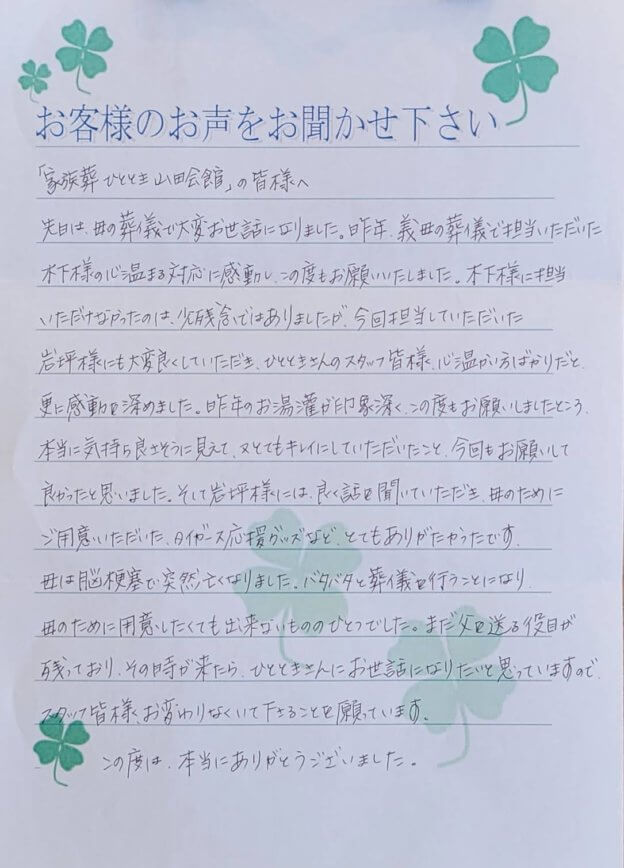 お客様のお声をお聞かせ下さい
「家族葬ひととき山田会館」の皆様へ
先日は、母の葬儀で大変お世話になりました。昨年、義母の葬儀で担当いただいた
木下様の心温まる対応に感動し、この度もお願いいたしました。木下様に担当
いただけなかったのは、少し残念ではありましたが、今回担当していただいた
岩坪様にも大変良くしていただき、ひとときさんのスタッフ皆様、心温かい方ばかりだと、
更に感動を深めました。昨年のお湯灌が印象深く、この度もお願いしましたところ、
本当に気持ち良さそうに見えて、又とてもキレイにしていただいたこと、今回もお願いして
良かったと思いました。そして岩坪様には、良く話を聞いていただき、母のために
ご用意いただいた、タイガース応援グッズなど、とてもありがたかったです。
母は脳梗塞で突然亡くなりました。バタバタと葬儀を行うことになり、
母のために用意したくても出来ないもののひとつでした。まだ父を送る役目が
残っており、その時が来たら、ひとときさんにお世話になりたいと思っていますので、
スタッフ皆様、お変わりなくいて下さることを願っています。
この度は、本当にありがとうございました。